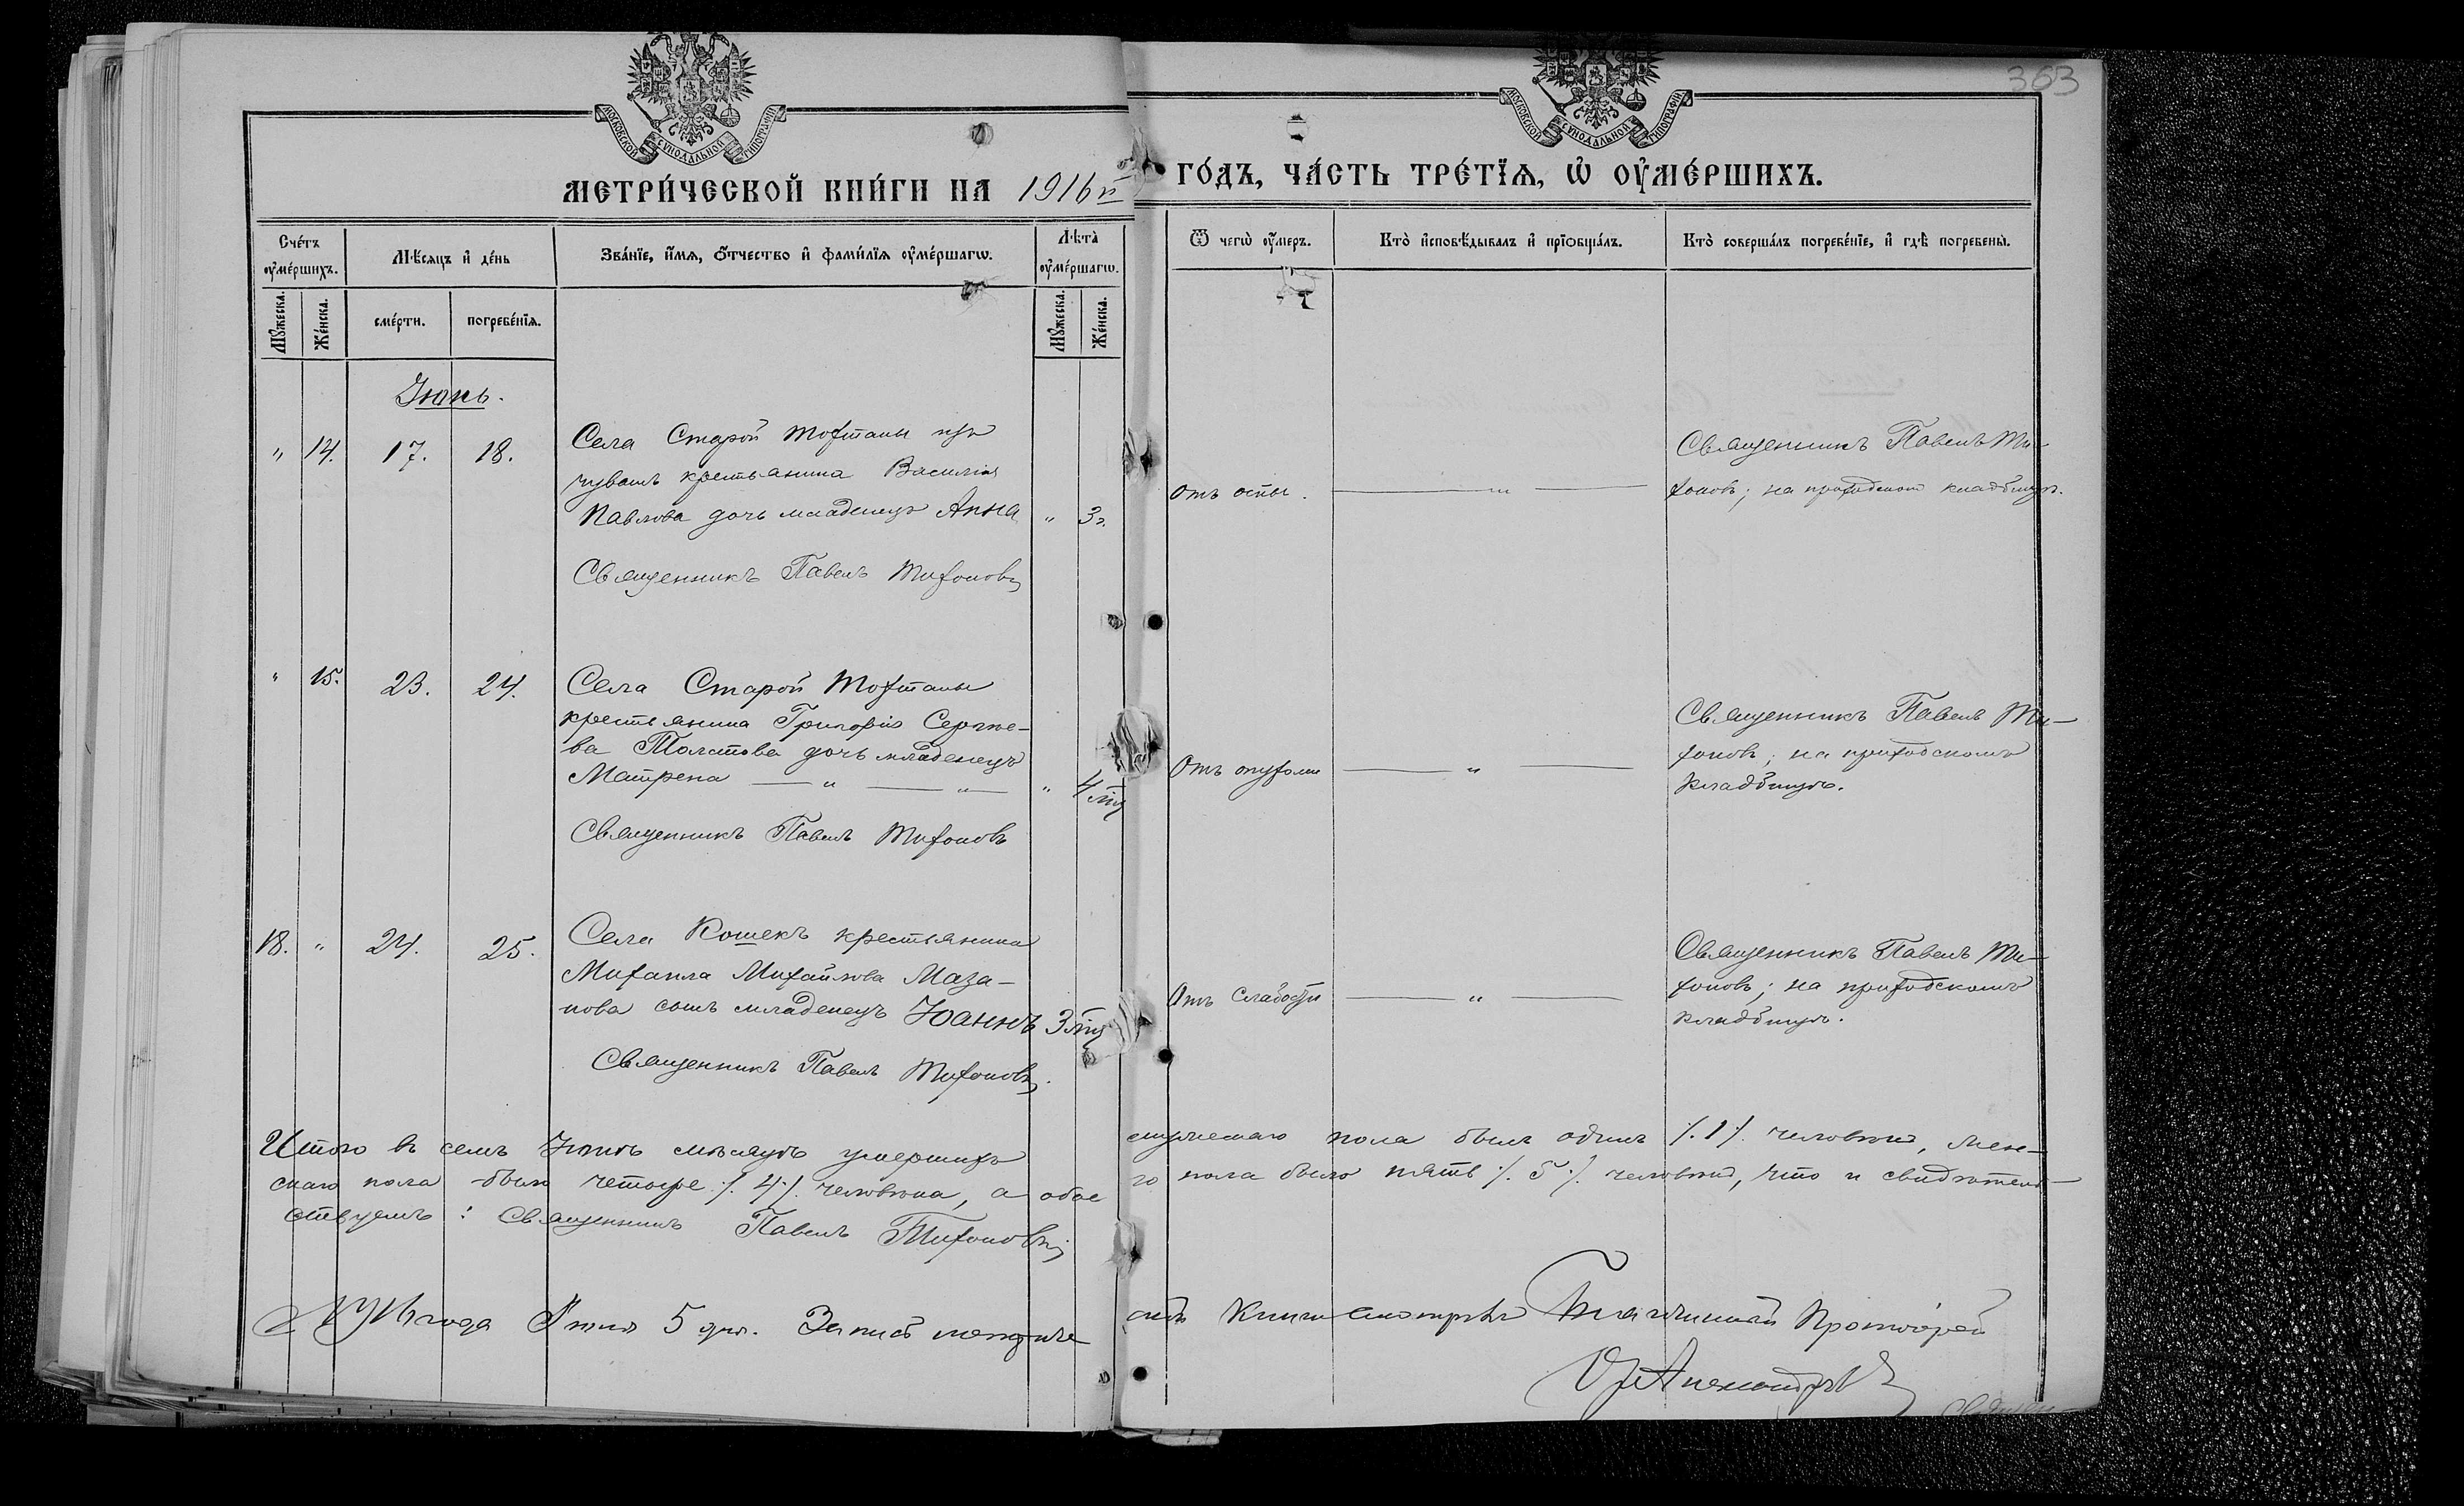 363
МОСКОВСКОЙ СѴНОДАЛЬНОЙ ТИПОГРАФІИ
МОСКОВСКОЙ СѴНОДАЛЬНОЙ ТИПОГРАФІИ
МЕТРИ́ЧЕСКОЙ КНИ́ГИ НА 1916й ГО́ДЪ, ЧА́СТЬ ТРЕ́ТЇѦ, Ѡ҆ ОУ҆МЕ́РШИХЪ.
Сче́тъ оу҆ме́ршихъ.
Мѣ́сяцъ и҆ де́нь
Зва́нїе, и҆́мѧ, ѻ҆́тчество и҆ фами́лїѧ оу҆ме́ршагѡ.
Лѣта̀ оу҆ме́ршагѡ.
Ѿ чегѡ̀ оу҆́меръ.
Кто̀ и҆сповѣ́дывалъ и҆ прїѡбща́лъ.
Кто̀ соверша́лъ погребе́нїе, и҆ гдѣ̀ погребены̀.
Мꙋ́жеска.
Же́нска.
сме́рти.
погребе́нїѧ.
Мꙋ́жеска.
Же́нска.
Іюнь.
" 14. 17. 18.
Села Старой Мохтаны изъ
чувашъ крестьянина Василія
Павлова дочь младенецъ Анна " 3г.
Священникъ Павелъ Тихоновъ
отъ оспы. — " —
Священникъ Павелъ Ти-
хоновъ; на приходскомъ кладбищѣ.
" 15. 23. 24.
Села Старой Мохтаны
крестьянина Григорія Сергѣе-
ва Толстова дочь младенецъ
Матрена — " — " — " 4 мц
Священникъ Павелъ Тихоновъ
Отъ опухоли — " —
Священникъ Павелъ Ти-
хоновъ; на приходскомъ
кладбищѣ.
18. " 24. 25.
Села Кошекъ крестьянина
Михаила Михайлова Маза-
нова сынъ младенецъ Іоаннъ 3 мц
Священникъ Павелъ Тихоновъ.
Отъ слабости — " —
Священникъ Павелъ Ти-
хоновъ; на приходскомъ
кладбищѣ.
Итого въ семъ Іюнѣ мѣсяцѣ умершихъ мужескаго пола былъ одинъ /.1/. человѣкъ, жен-
скаго пола было четыре /.4/. человѣка, а обоего пола было пять /.5/. человѣкъ, что и свидѣтель-
ствуемъ: Священникъ Павелъ Тихоновъ
1916 года 5 дня. Запись книги смотрѣлъ Благочинный Протоіерей
Александровъ